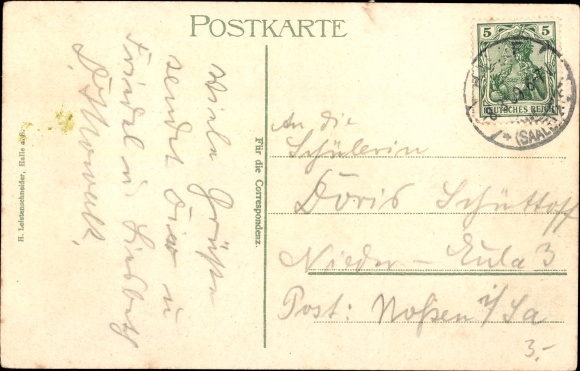 POSTKARTE
5 5
DEUTSCHES REICH
(SAALE)
Viele Grüße
sendet Dir u
Friedel u. Liesbeth
H. Leistenschneider, Halle a. S.
Für die Correspondenz.
An die
Schülerin
Doris Schüttoff
Nieder-Eula 3
Post: Noßen i/Sa
3.-